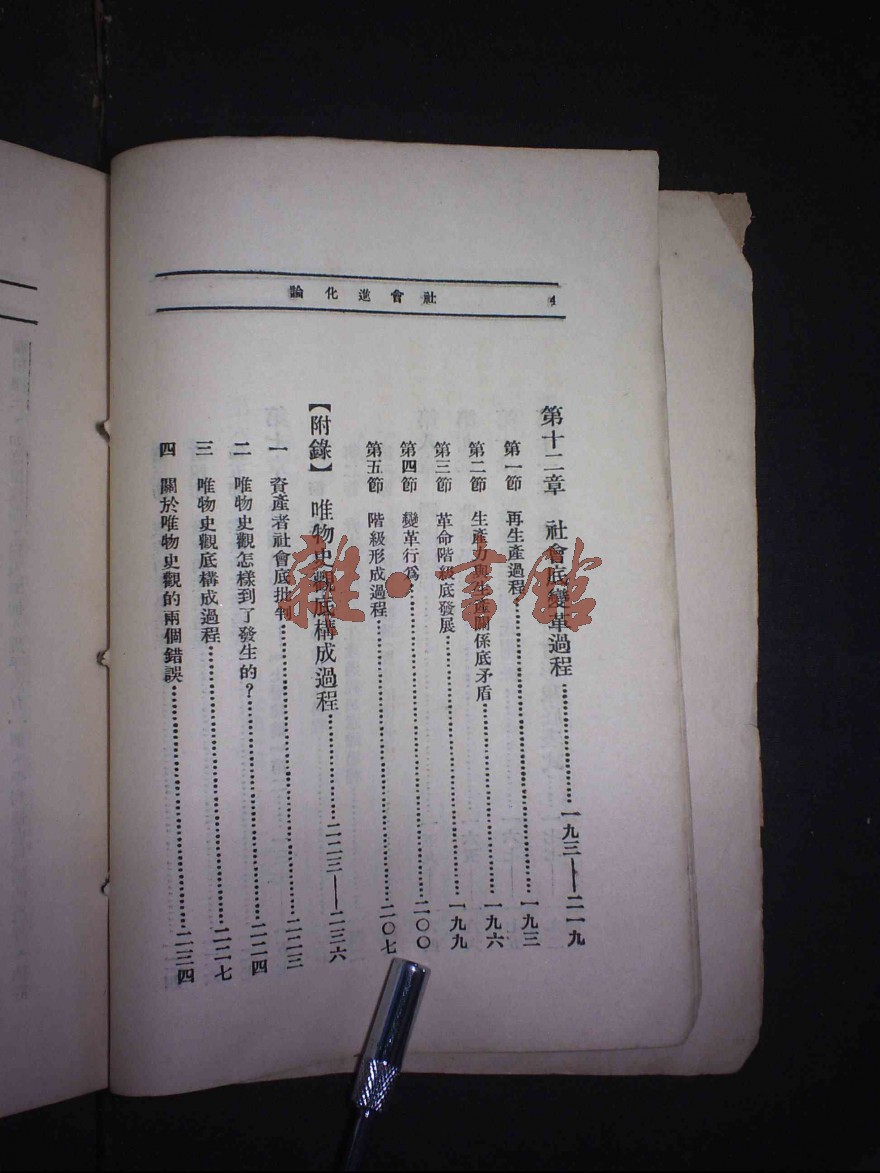 社會進化論
4
第十二章 社會底變革過程…………一九三——二一九
第一節 再生產過程…………一九三
第二節 生產力與生產關係底矛盾…………一九六
第三節 革命階級底發展…………一九九
第四節 變革行爲…………二〇〇
第五節 階級形成過程…………二〇七
【附錄】 唯物史觀底構成過程…………二二三——二三六
一 資產者社會底批判…………二二三
二 唯物史觀怎樣到了發生的?…………二二四
三 唯物史觀底構成過程…………二二七
四 關於唯物史觀的兩個錯誤…………二三四
雜·書館